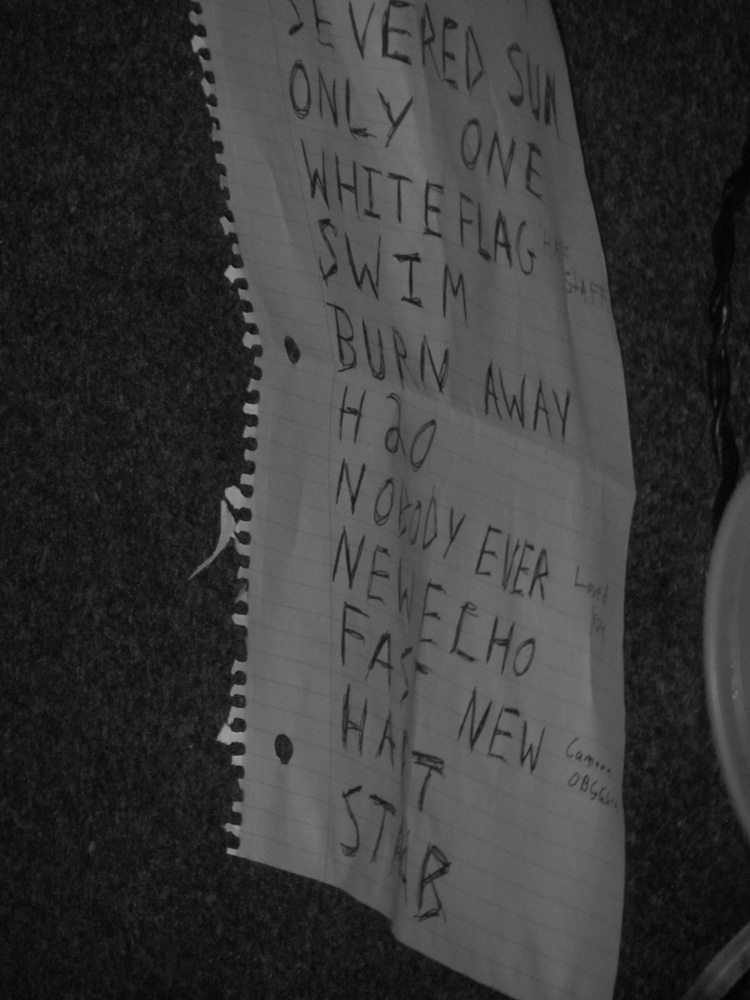 SEVERED SUN
ONLY ONE
WHITE FLAG HALF STAFF
SWIM
BURN AWAY
H2O
NOBODY EVER Loved you
NEW ECHO
FAST NEW
HAIT
STAB